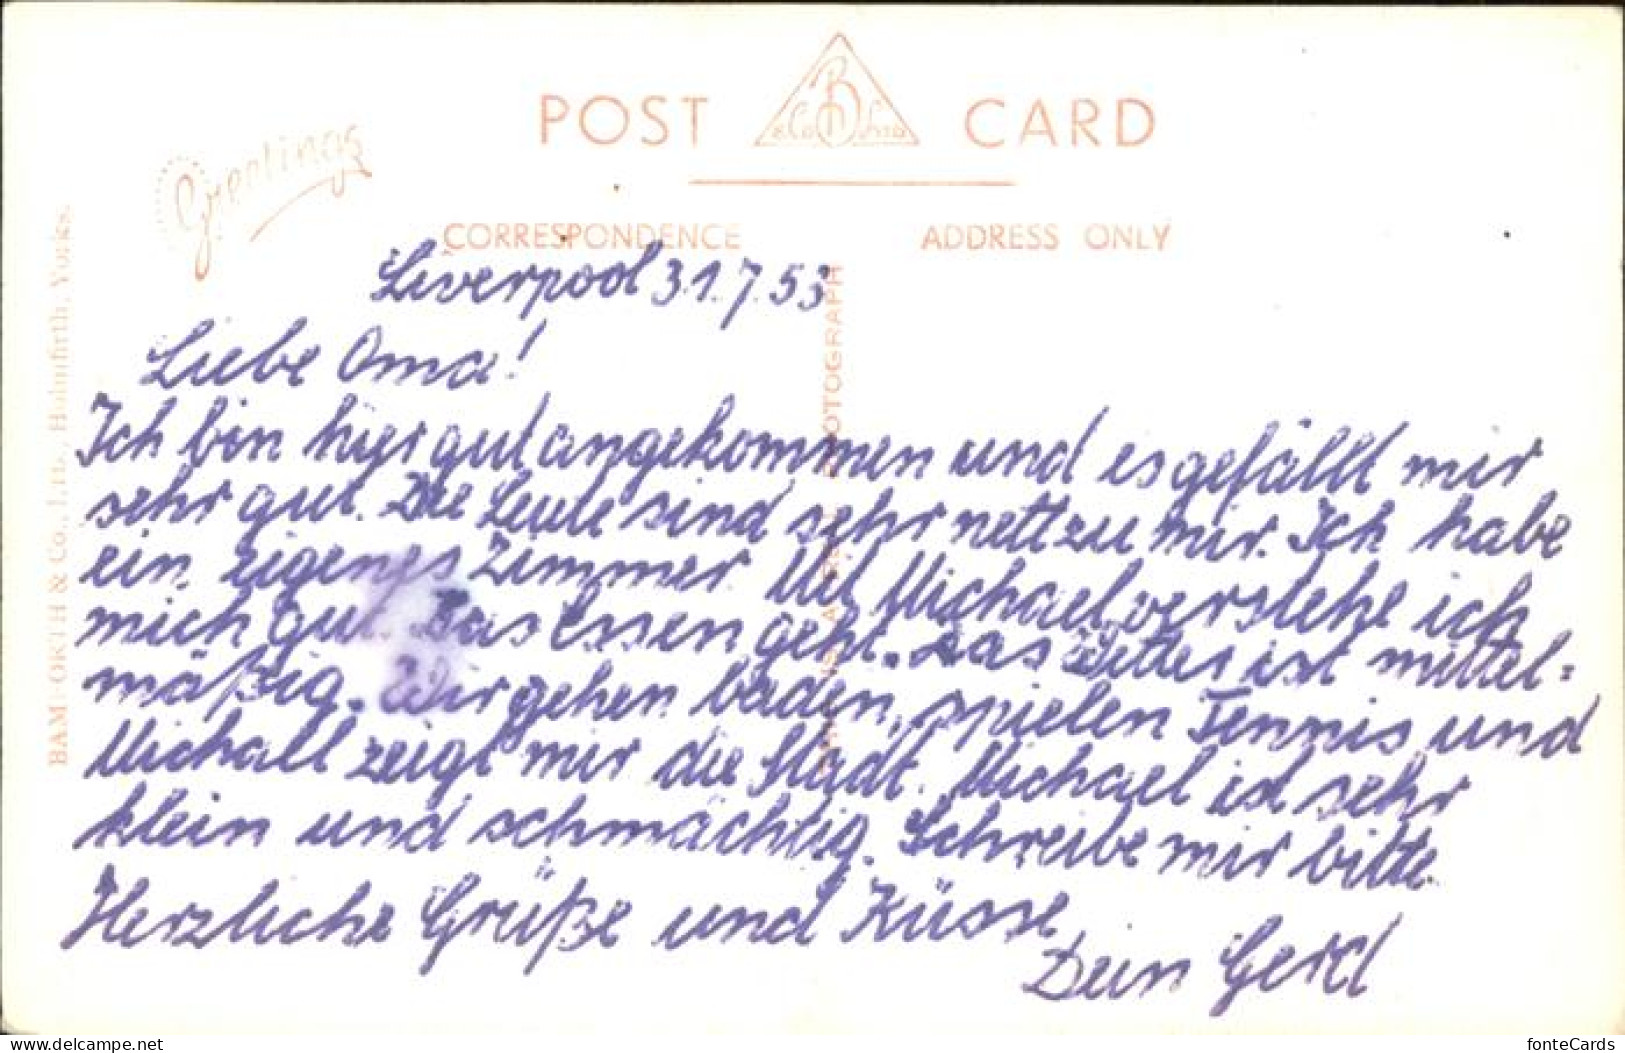 POST CARD
Greetings
CORRESPONDENCE
ADDRESS ONLY
BAMFORTH & Co., LTD., Holmfirth, Yorks.
PHOTOGRAPH
Liverpool 31.7.53
Liebe Oma!
Ich bin hier gut angekommen und es gefällt mir
sehr gut. Die Leute sind sehr nett zu mir. Ich habe
ein eigenes Zimmer. Mit Michael verstehe ich
mich gut. Das Essen geht. Das Wetter ist mittel=
mäßig. Wir gehen baden, spielen Tennis und
Michael zeigt mir die Stadt. Michael ist sehr
klein und schmächtig. Schreibe mir bitte.
Herzliche Grüße und Küsse
Dein Gerd
delcampe.net
fonteCards